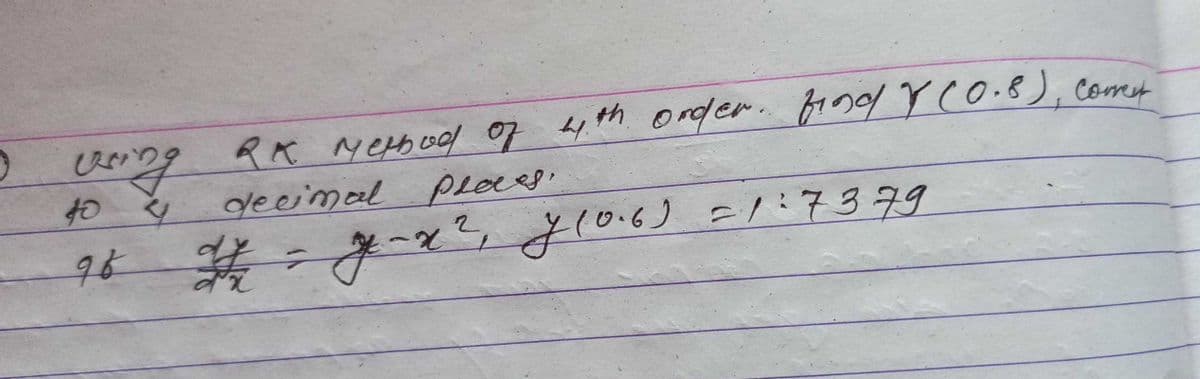 using RK Method of 4th order. find Y(0.8), correct
to 4 decimal places.
If dy/dx = y-x², y(0.6) = 1.7379